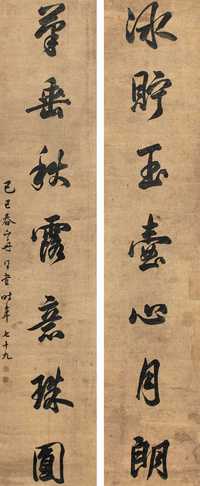 冰貯玉壺心月朗
筆垂秋露意珠圓
己巳春 時年七十九